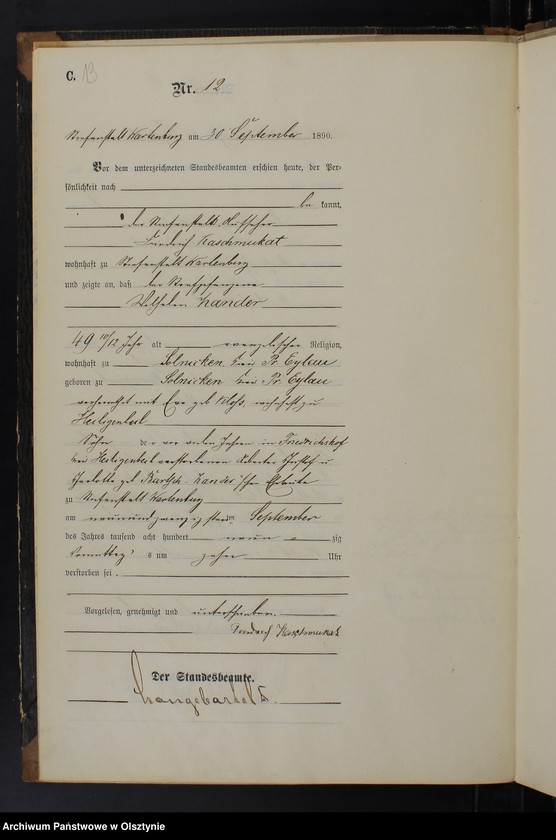 C. 13
Nr. 12
Strafanstalt Wartenburg am 30 September 1890.
Vor dem unterzeichneten Standesbeamten erschien heute, der Per-
sönlichkeit nach
be kannt,
der Strafanstalts Aufseher
Friedrich Kaschmekat
wohnhaft zu Strafanstalt Wartenburg
und zeigte an, daß der Strafgefangene
Wilhelm Zander
49 10/12 Jahr alt evangelischer Religion,
wohnhaft zu Solnicken Kreis Pr. Eylau
geboren zu Solnicken Kreis Pr. Eylau
verheirathet mit Eva geb Kloß, wohnhaft zu
Heiligenbeil
Sohn der vor vielen Jahren in Friedrichshof
bei Heiligenbeil verstorbenen Arbeiter Christoph u
Charlotte geb Bartsch Zander'schen Eheleute
zu Strafanstalt Wartenburg
am neunundzwanzigsten September
des Jahres tausend acht hundert neun zig
Vormittag s um zehn Uhr
verstorben sei.
Vorgelesen, genehmigt und unterschrieben.
Friedrich Kaschmekat
Der Standesbeamte.
Langebartel
Archiwum Państwowe w Olsztynie